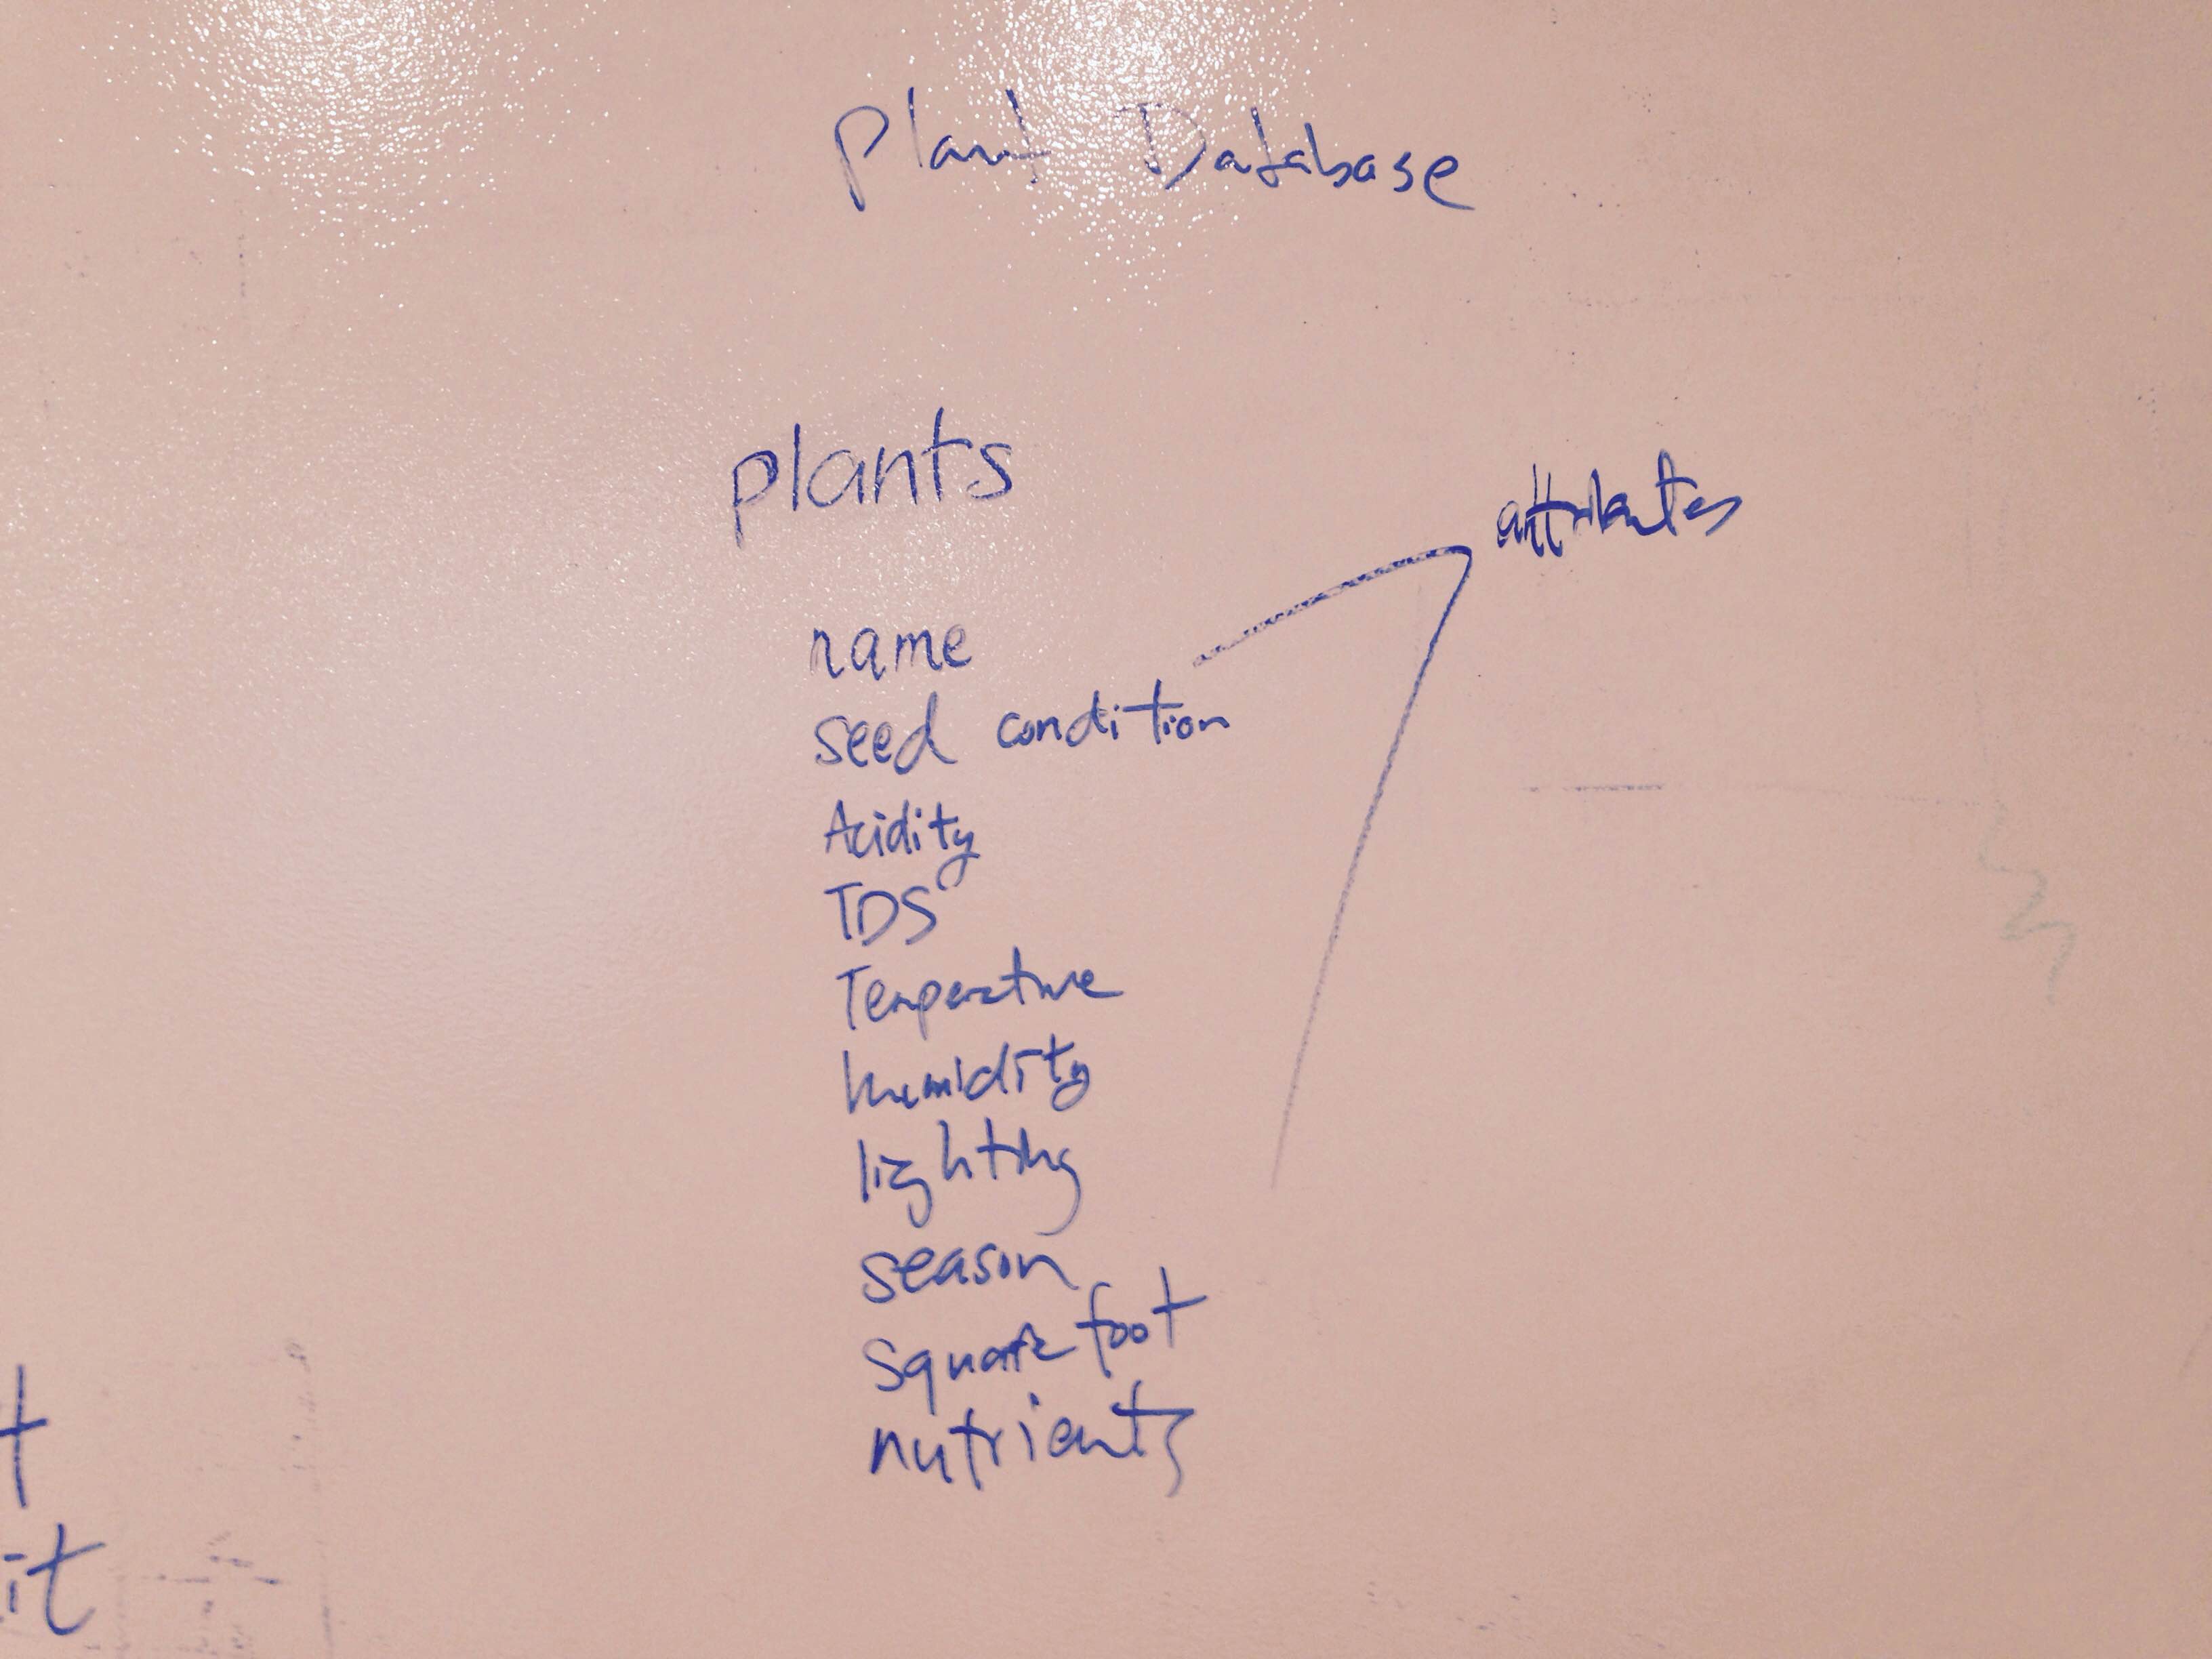 Plant Database
plants
attributes
name
seed condition
Acidity
TDS
Temperature
humidity
lighting
season
square foot
nutrients
t
it